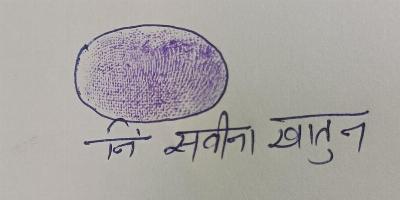 नि सवीना खातुन